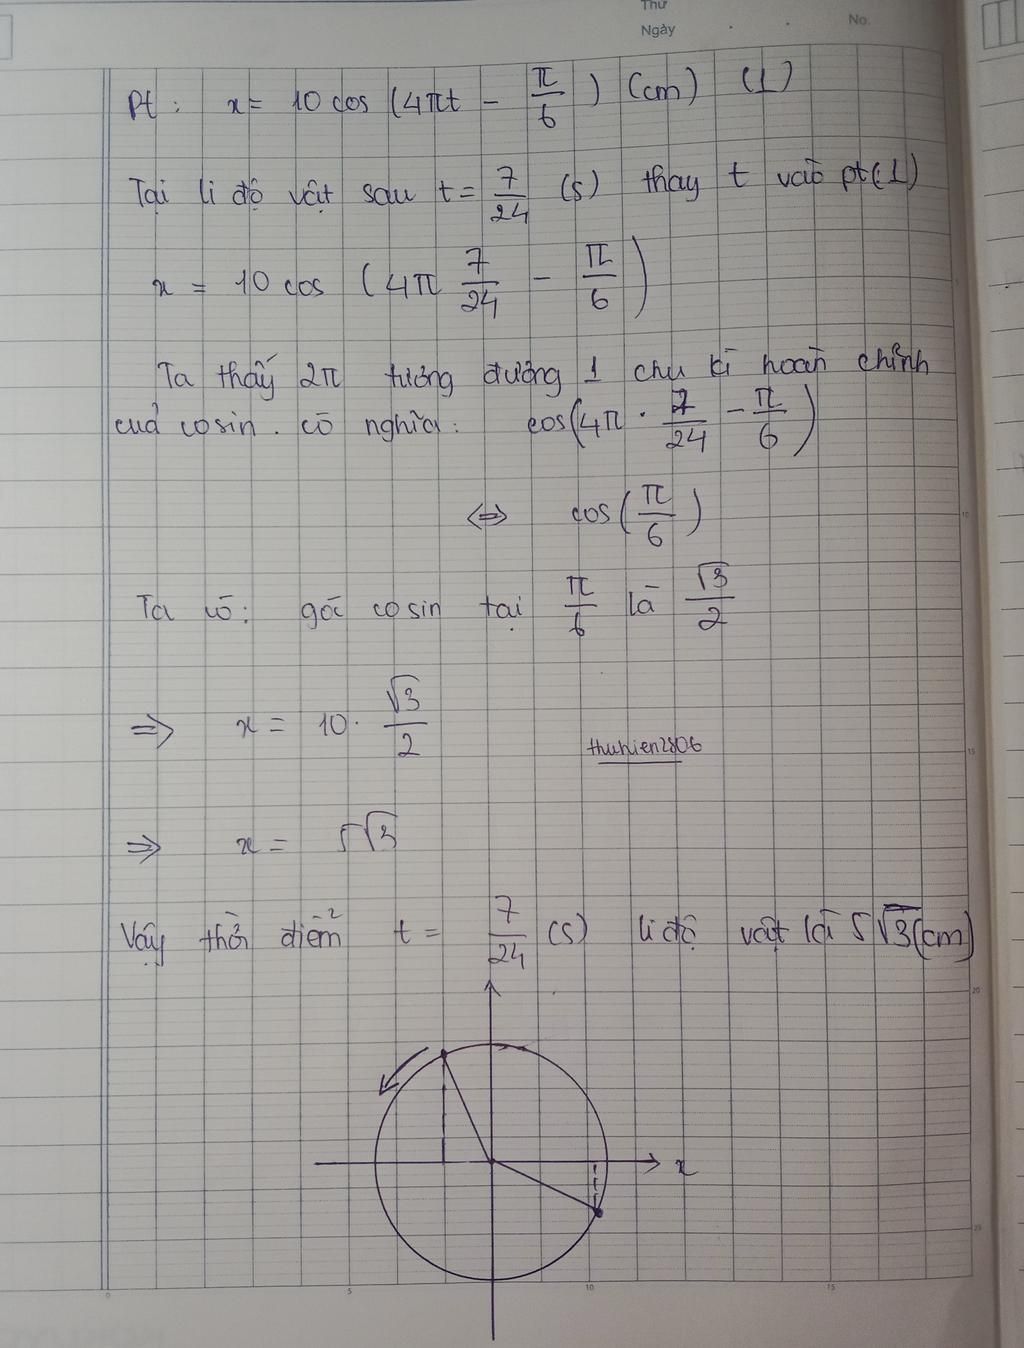 Thứ
Ngày
No.
Pt: x = 10 cos (4πt - π/6) (cm) (1)
Tại li độ vật sau t = 7/24 (s) thay t vào pt(1)
x = 10 cos (4π 7/24 - π/6)
Ta thấy 2π tương đương 1 chu kì hoàn chỉnh
của cosin. có nghĩa: cos(4π · 7/24 - π/6)
⇔ cos(π/6)
Ta có: góc cosin tại π/6 là √3/2
⇒ x = 10 · √3/2
thuhien2806
⇒ x = 5√3
Vậy thời điểm t = 7/24 (s) li độ vật là 5√3 (cm)
x
5
10
15
20
25
0
5
10
15